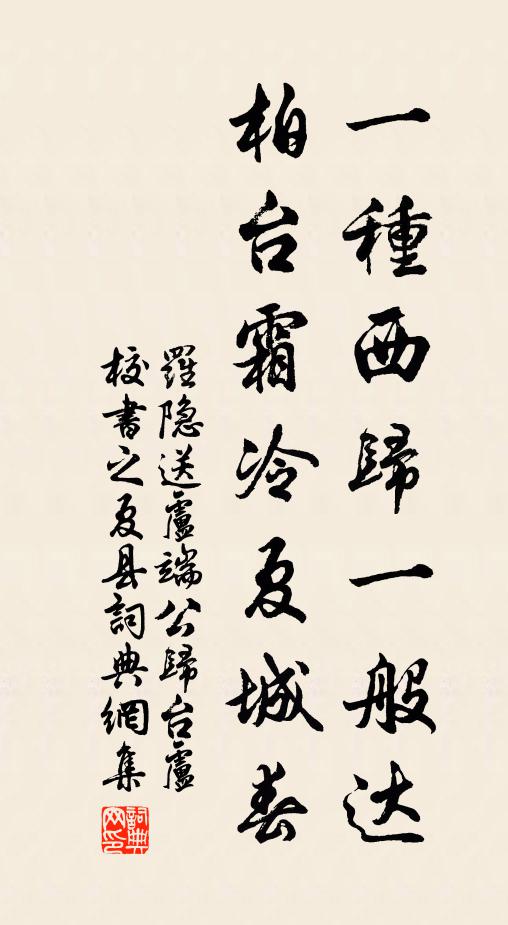 一種西歸一般达
柏台霜冷夏城春
羅隐送盧端公歸台盧
校書之夏县詞典網集
詞典
网印